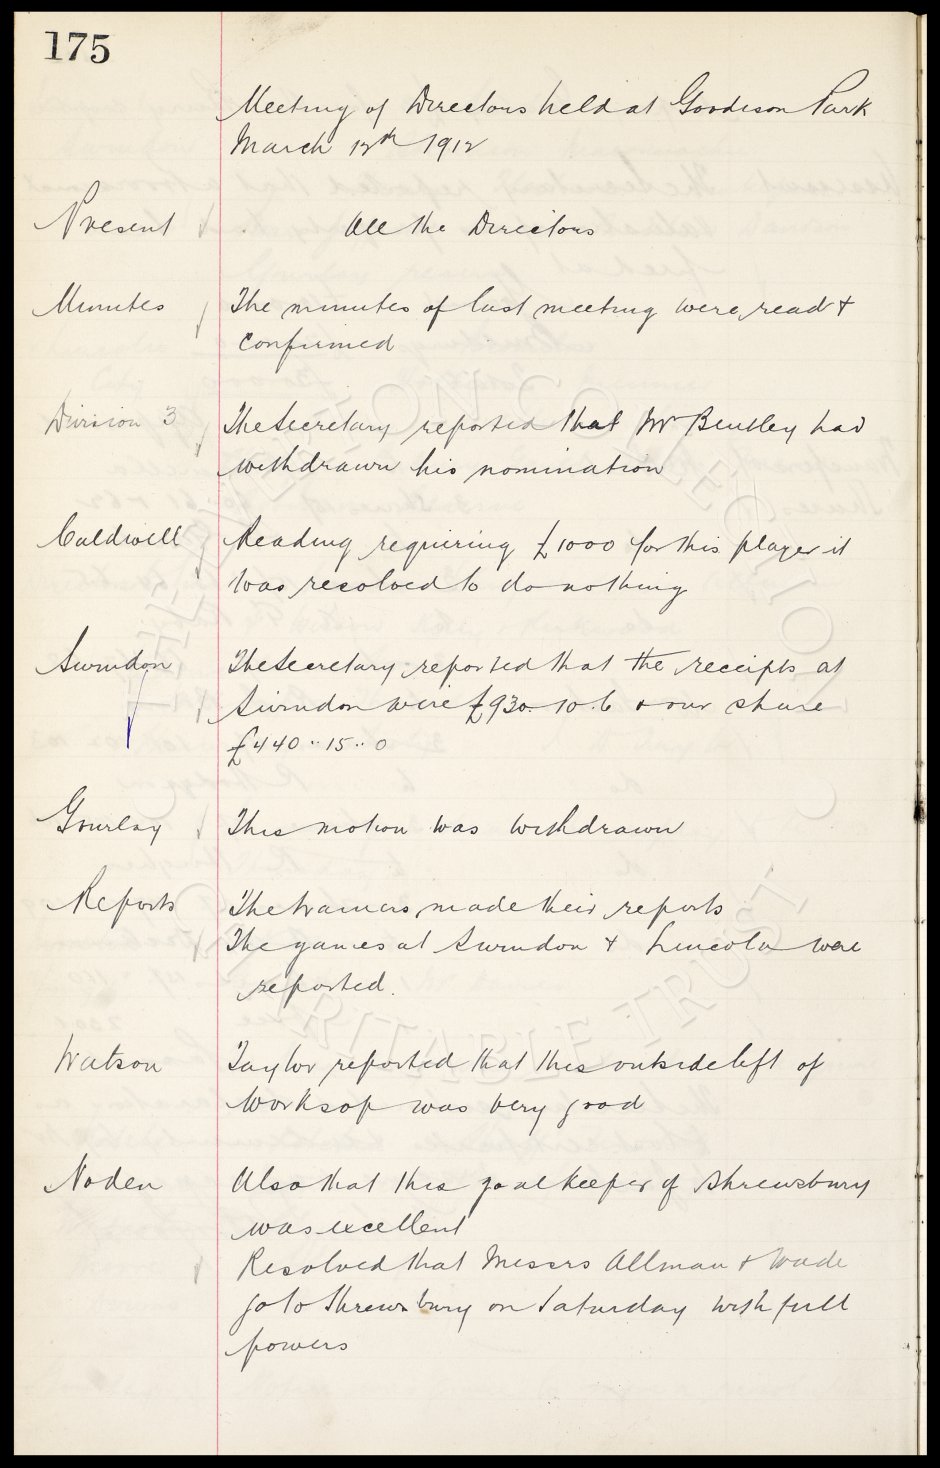 175
Meeting of Directors held at Goodison Park
March 12th 1912
Present All the Directors
Minutes The minutes of last meeting were read +
confirmed
Division 3 The Secretary reported that Mr Bentley had
withdrawn his nomination
Caldwell Reading requiring £1000 for this player it
was resolved to do nothing
Swindon The Secretary reported that the receipts at
Swindon were £930.10.6 & our share
£440..15..0
Gourlay This motion was withdrawn
Reports The trainers made their reports
The games at Swindon + Lincoln were
reported.
Watson Taylor reported that this outside left of
Worksop was very good
Noden Also that this goalkeeper of Shrewsbury
was excellent
Resolved that Messrs Allman + Wade
go to Shrewsbury on Saturday with full
powers